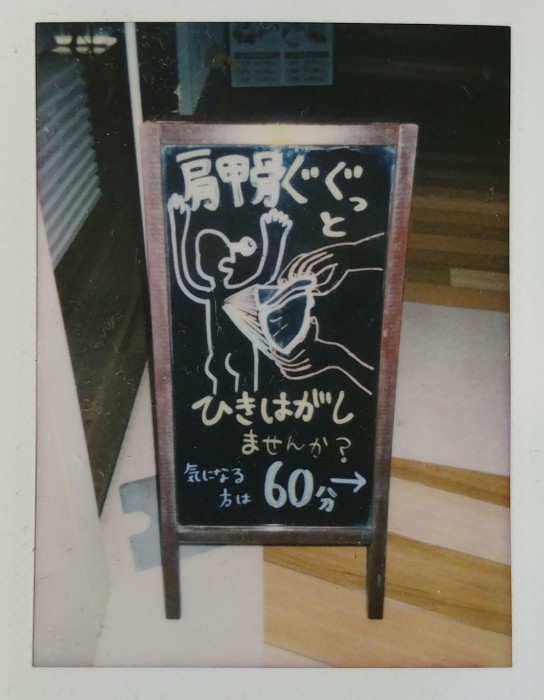 肩甲骨ぐぐっ
と
ひきはがし
ませんか?
気になる
方は 60分→